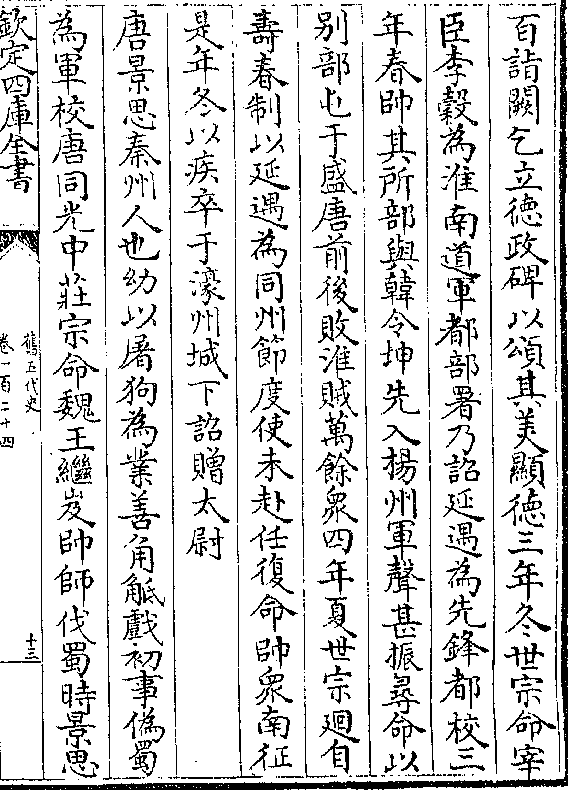 百詣闕乞立徳政碑以頌其美顯徳三年冬世宗命宰
臣李穀為淮南道軍都部署乃詔延遇為先鋒都校三
年春帥其所部與韓令坤先入楊州軍聲甚振尋命以
别部屯于盛唐前後敗淮賊萬餘衆四年夏世宗廻自
壽春制以延遇為同州節度使未赴任復命帥衆南征
是年冬以疾卒于濠州城下詔贈太尉
唐景思秦州人也幼以屠狗為業善角觝戲初事偽蜀
為軍校唐同光中莊宗命魏王繼岌帥師伐蜀時景思
欽定四庫全書
舊五代史
卷一百二十四
十三